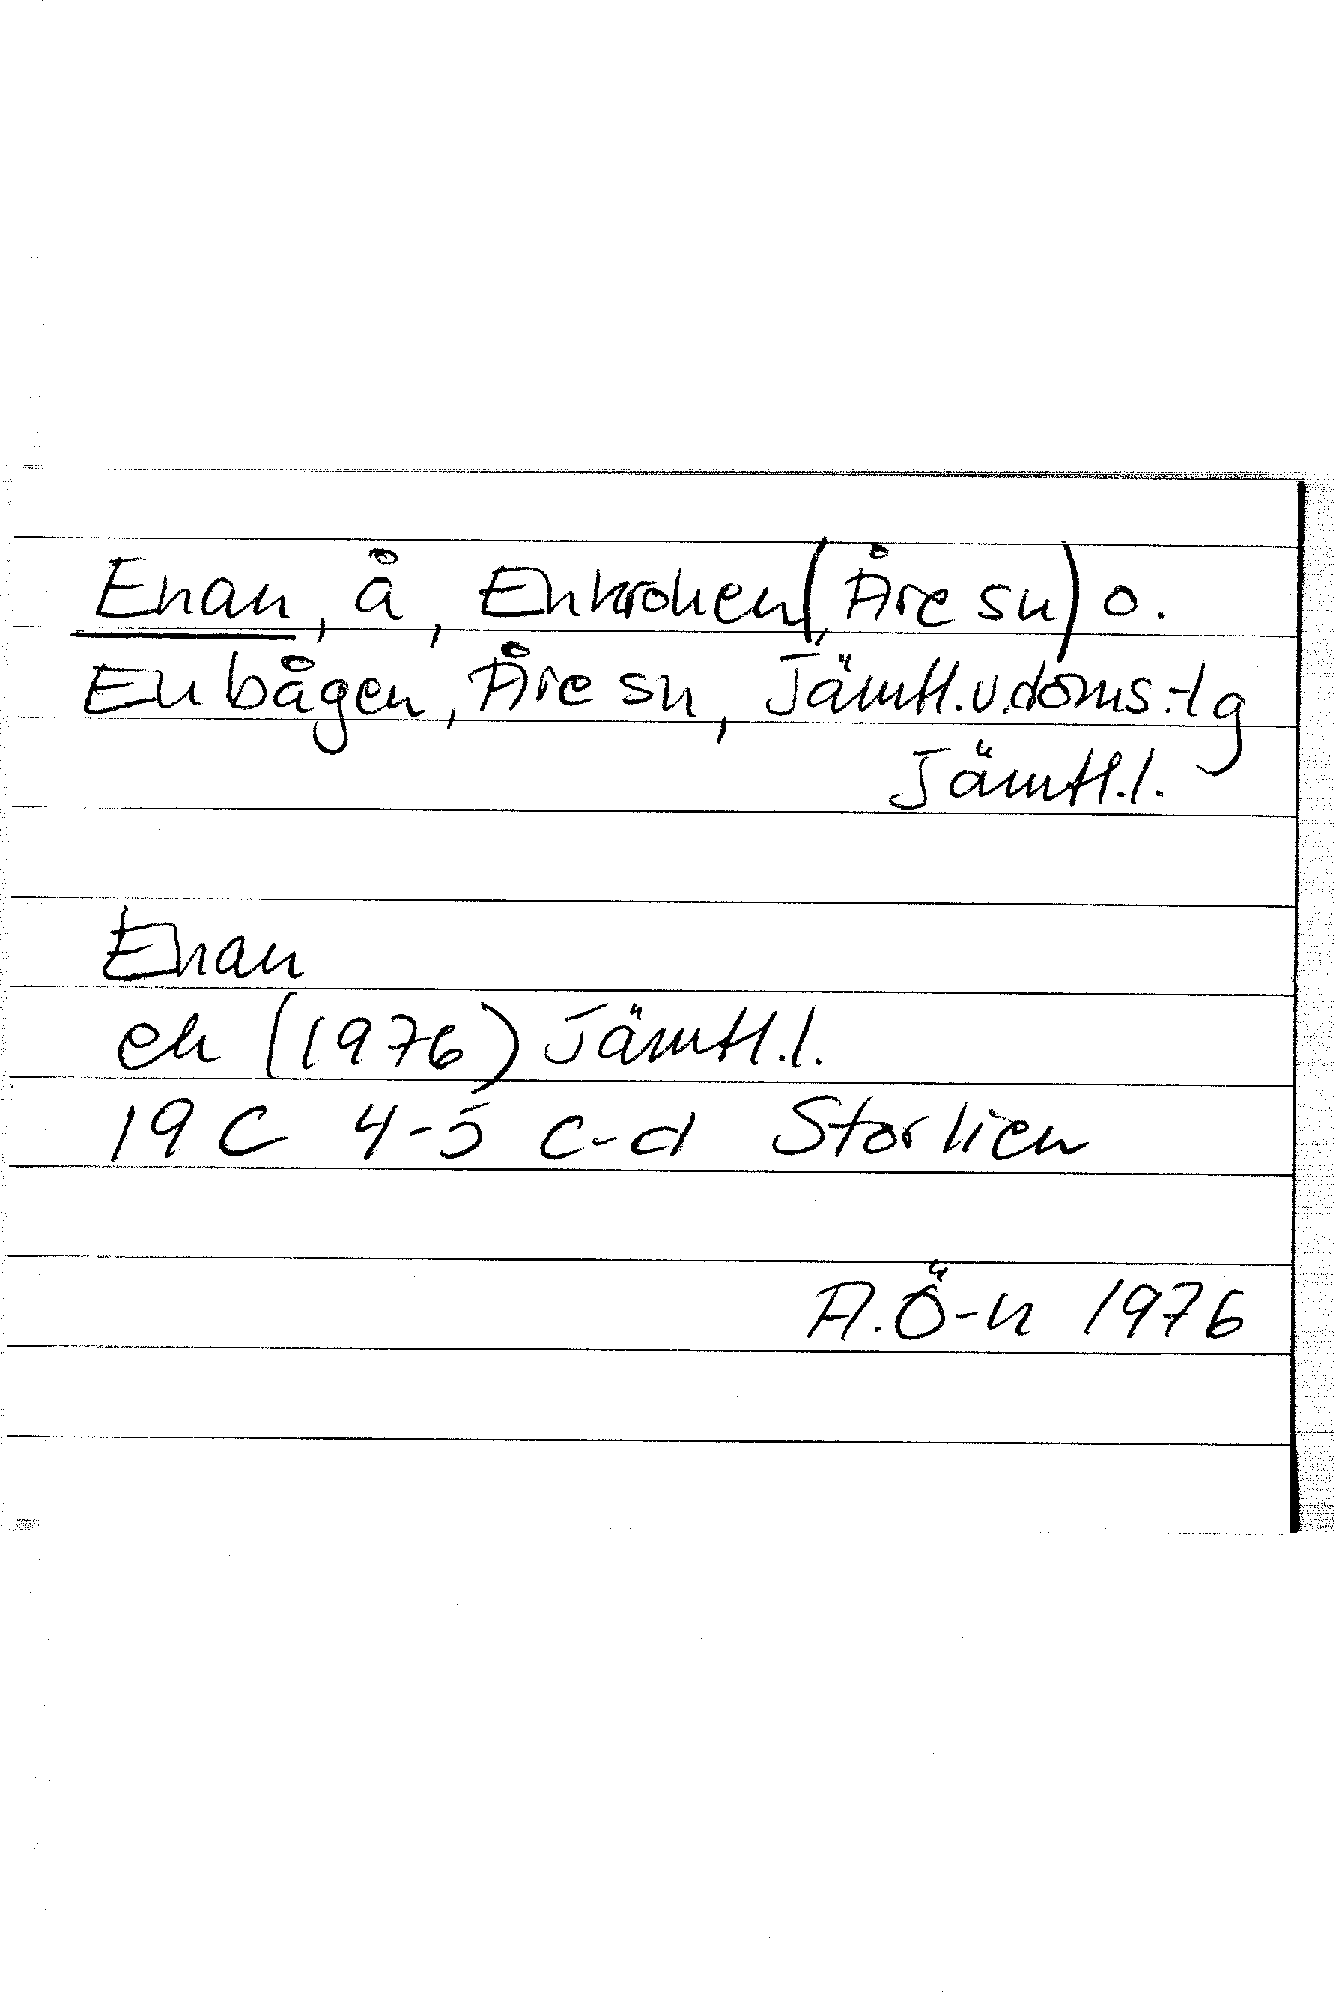 Enan, å, Enkroken (, Åre sn) o.
Enbågen, Åre sn, Jämtl.v.doms.-lg
Jämtl.l.
Enan
ek (1976) Jämtl.l.
19 C 4-5 c-d Storlien
A.Ö-n 1976